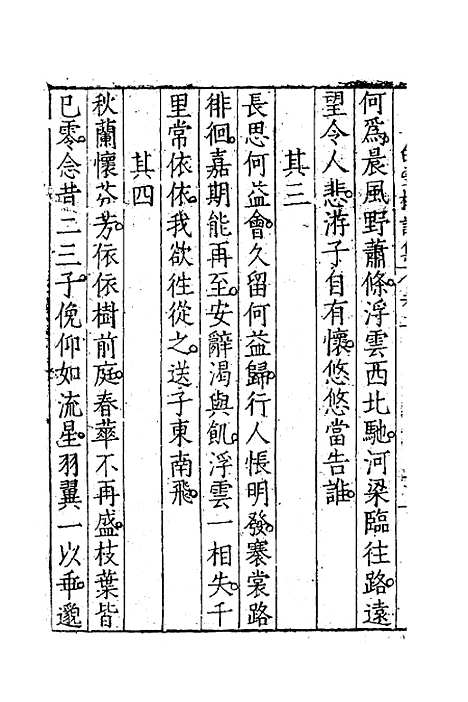 何爲晨風野蕭條浮雲西北馳河梁臨往路遠
望令人悲游子自有懷悠悠當告誰
其三
長思何益會久留何益歸行人悵明發褰裳路
徘徊嘉期能再至安辭渴與飢浮雲一相失千
里常依依我欲徃從之送子東南飛
其四
秋蘭懷芬芳依依樹前庭春華不再盛枝葉皆
已零念昔二三子俛仰如流星羽翼一以乖邈